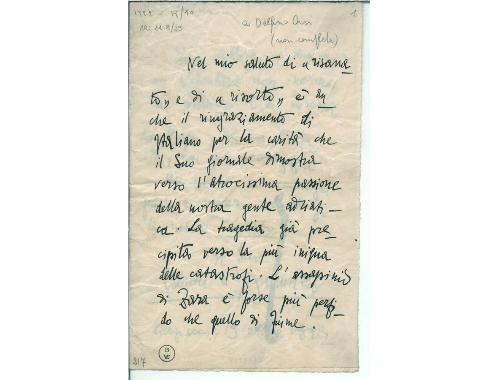 1
a Delfino Orsi
(non completa)
Nel mio saluto di «risana-
to» e di «risorto», è an
che il ringraziamento di
Italiano per la carità che
il Suo giornale dimostra
verso l'atrocissima passione
della nostra gente adriati-
ca. La tragedia già pre
cipita verso la più iniqua
delle catastrofi. L'assassinio
di Zara è forse più perfi
do che quello di Fiume.
217